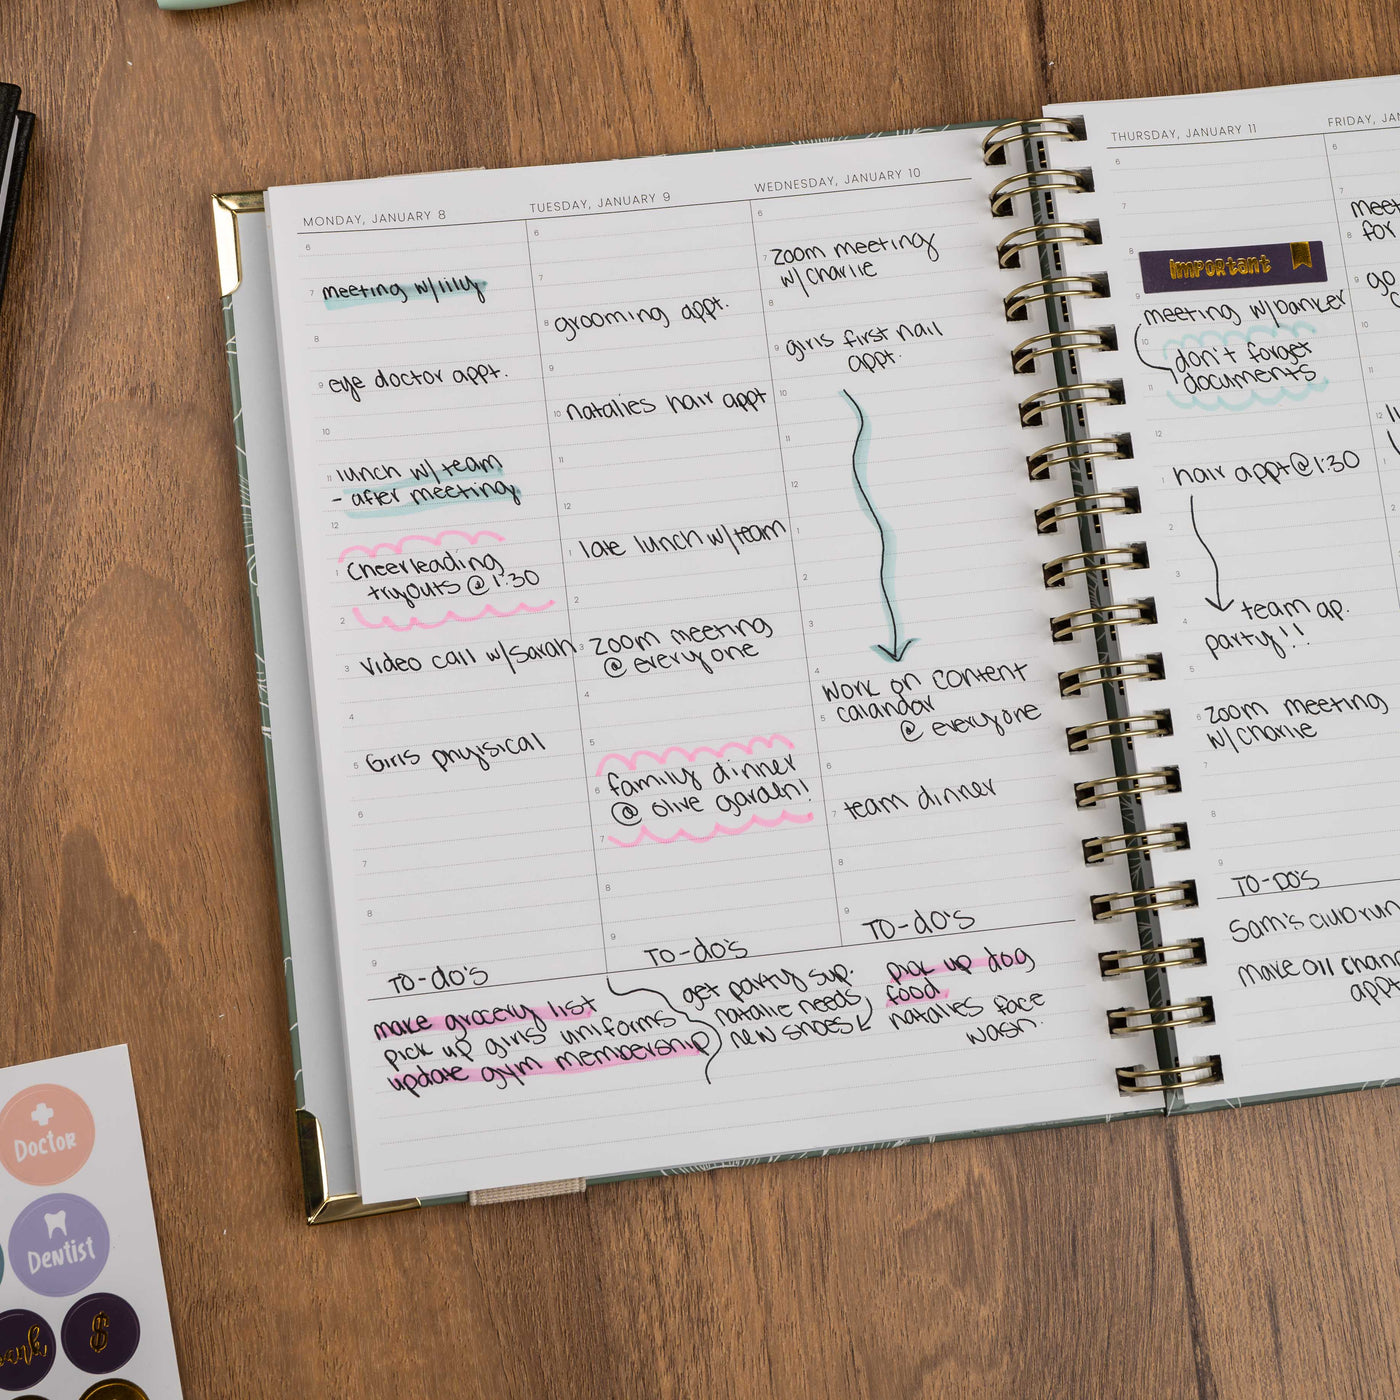 MONDAY, JANUARY 8
6
7 meeting w/lily
8
9 eye doctor appt.
10
11 lunch w/ team
- after meeting
12
1 Cheerleading
tryouts @ 1:30
2
3 video call w/Sarah
4
5 Girls phyisical
6
7
8
9
TO-do's
make grocery list
pick up girls uniforms
update gym membership
TUESDAY, JANUARY 9
6
7
8 grooming appt.
9
10 natalies hair appt
11
12
1 late lunch w/team
2
3 zoom meeting
@ everyone
4
5
6 family dinner
@ olive garden!
7
8
9
TO-do's
get party sup.
natalie needs
new shoes
WEDNESDAY, JANUARY 10
6
7 zoom meeting
w/ charlie
8
9 girls first nail
appt.
10
11
12
1
2
3
4
work on content
5 calandar
@ everyone
6
7 team dinner
8
9
TO-do's
pick up dog
food
natalies face
wash.
THURSDAY, JANUARY 11
6
7
8
important
9
meeting w/banker
10 don't forget
11 documents
12
1 hair appt@1:30
2
3
4 team ap.
party!!
5
6 zoom meeting
w/charlie
7
8
9
TO-DO'S
Sam's club run
make oil chan
appt
FRIDAY, JAN
6
7
meet
8 for
9 go
10
11
12
1
2
Doctor
Dentist
$